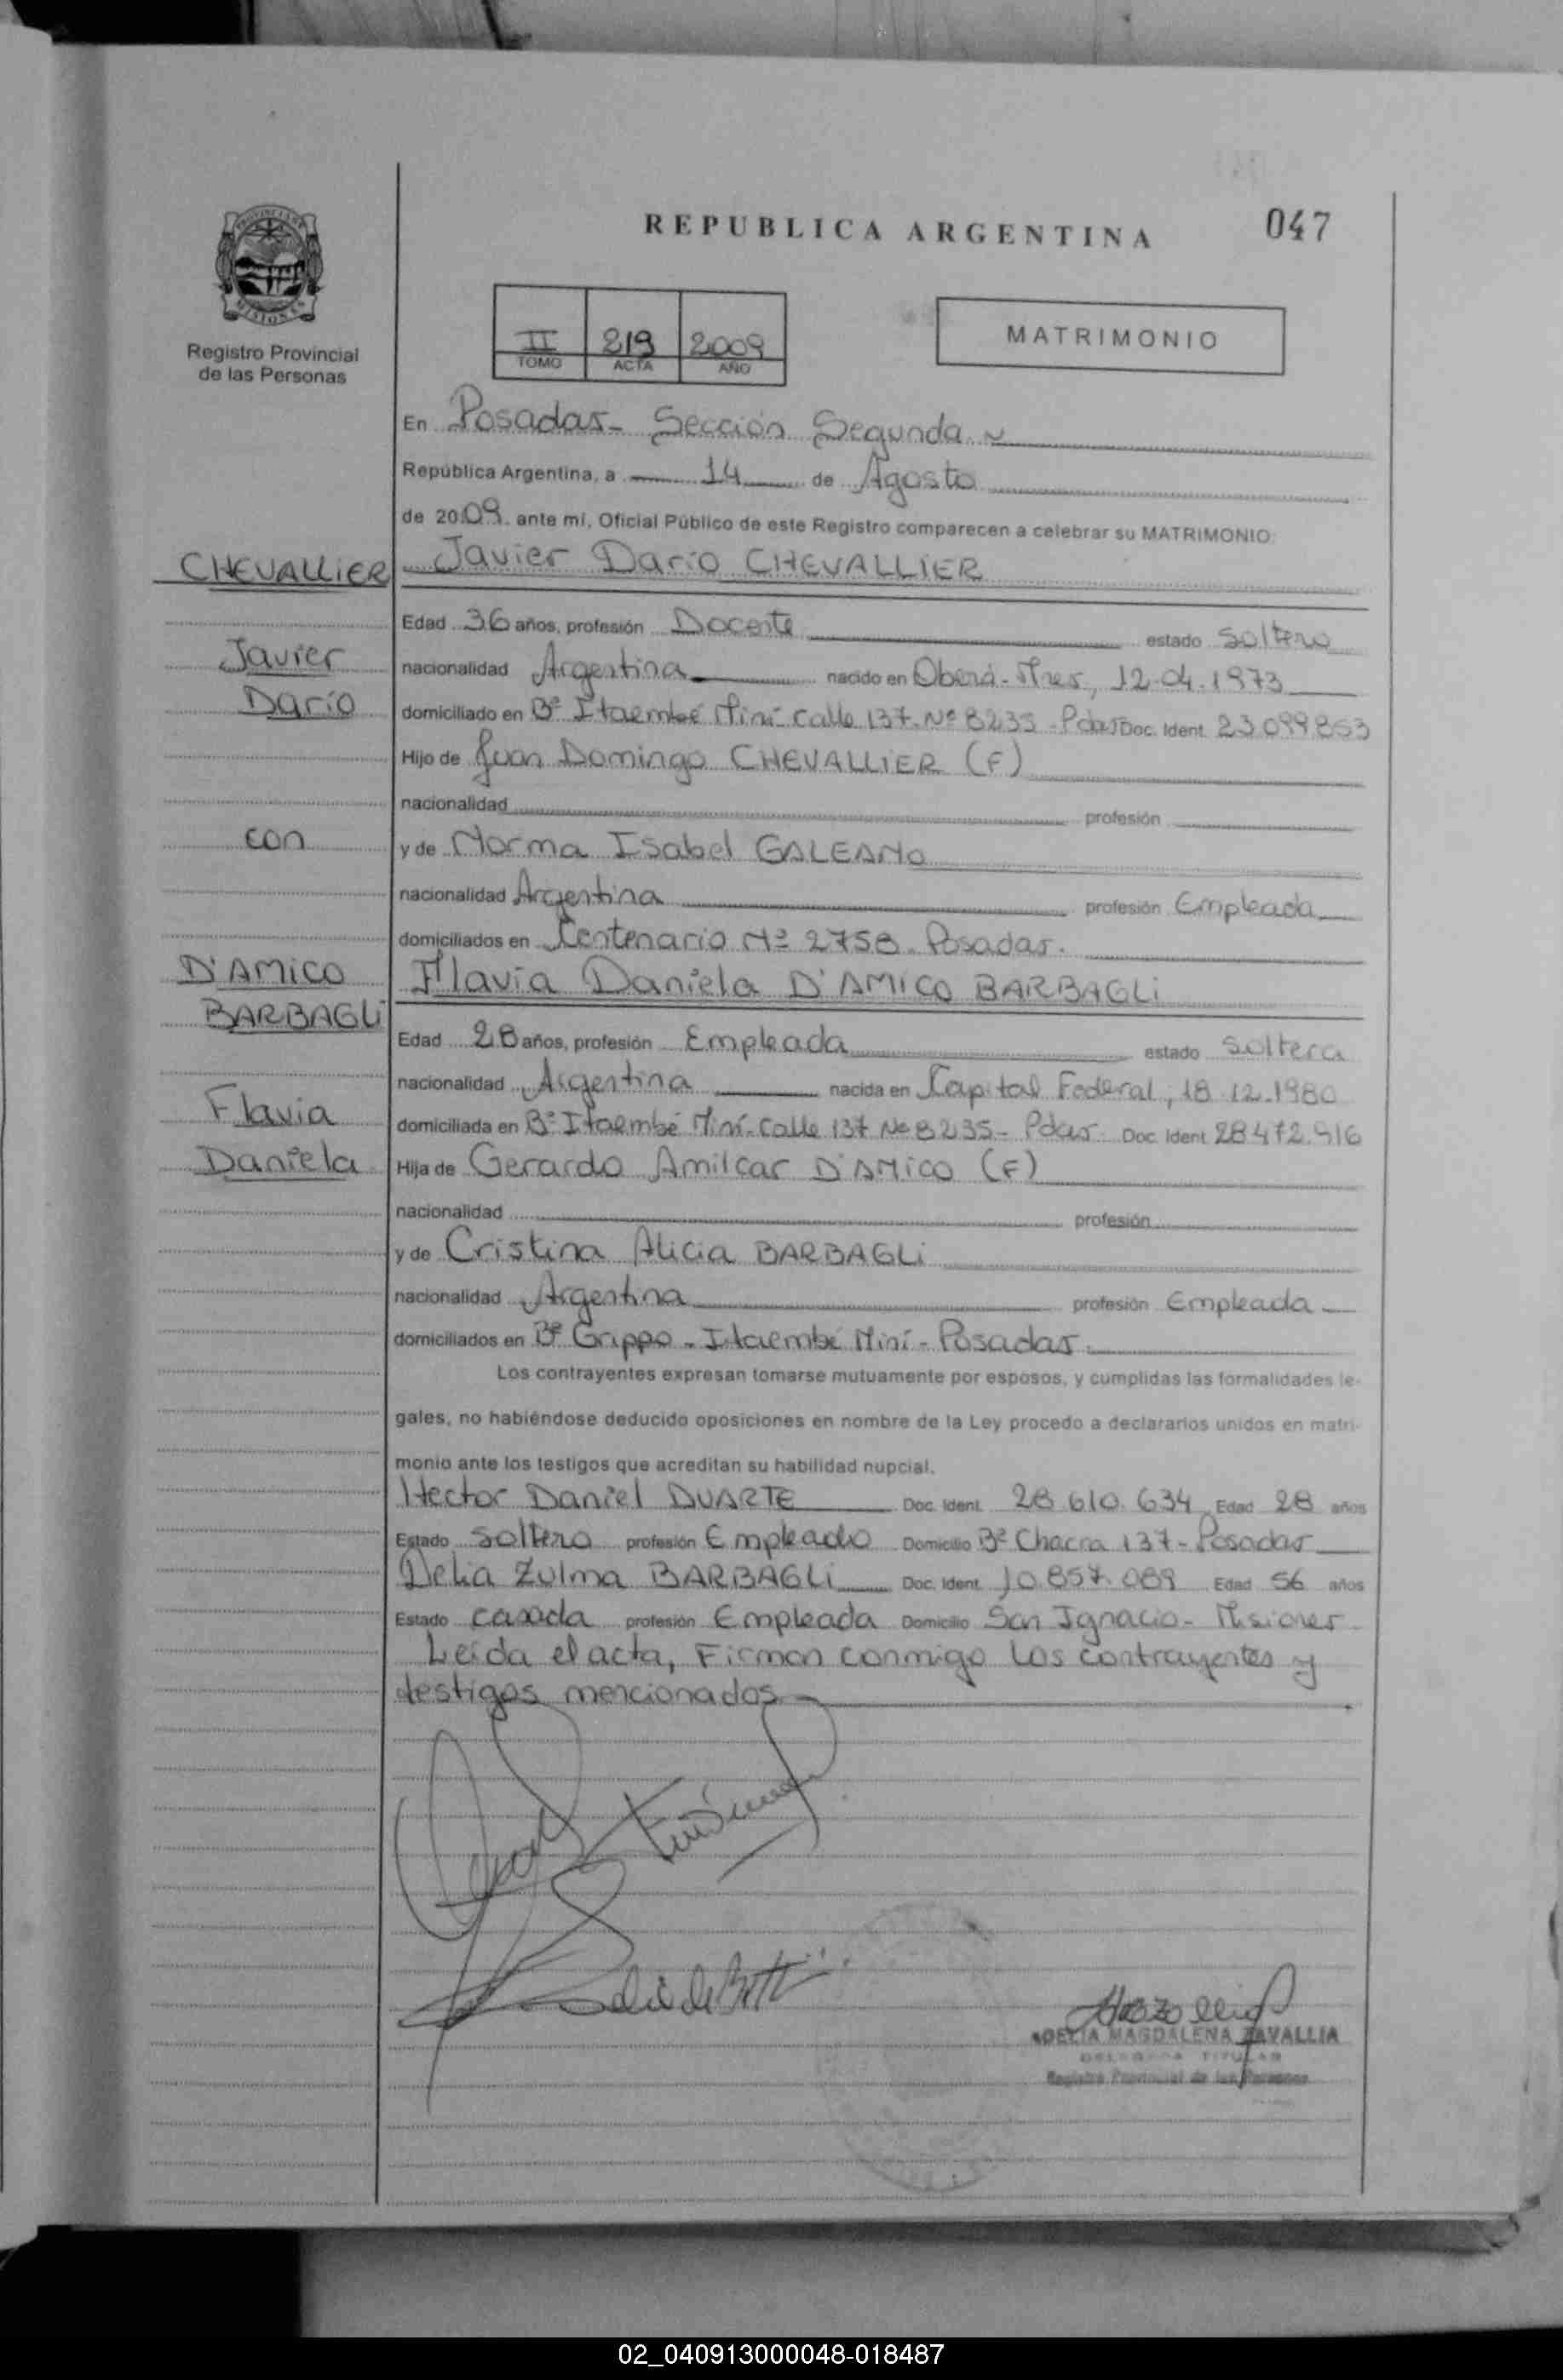 REPUBLICA ARGENTINA
047
Registro Provincial
de las Personas
II 219 2009
TOMO ACTA AÑO
MATRIMONIO
En Posadas - Sección Segunda
República Argentina, a 14 de Agosto
de 2009 ante mí, Oficial Público de este Registro comparecen a celebrar su MATRIMONIO:
CHEVALLIER
Javier Darío CHEVALLIER
Edad 36 años, profesión Docente estado Soltero
Javier
nacionalidad Argentina nacido en Oberá - Mnes, 12.04.1973
Darío
domiciliado en Bº Itaembé Miní - Calle 137 - Nº 8235 - Pdas Doc. Ident. 23.099.853
Hijo de Juan Domingo CHEVALLIER (F)
nacionalidad profesión
con
y de Norma Isabel GALEANO
nacionalidad Argentina profesión Empleada
domiciliados en Centenario Nº 2758 - Posadas.
D'AMICO
BARBAGLI
Flavia Daniela D'AMICO BARBAGLI
Edad 28 años, profesión Empleada estado Soltera
nacionalidad Argentina nacida en Capital Federal, 18.12.1980
Flavia
domiciliada en Bº Itaembé Miní - Calle 137 Nº 8235 - Pdas - Doc. Ident. 28.472.916
Daniela
Hija de Gerardo Amilcar D'AMICO (F)
nacionalidad profesión
y de Cristina Alicia BARBAGLI
nacionalidad Argentina profesión Empleada
domiciliados en Bº Grippo - Itaembé Miní - Posadas.
Los contrayentes expresan tomarse mutuamente por esposos, y cumplidas las formalidades le-
gales, no habiéndose deducido oposiciones en nombre de la Ley procedo a declararlos unidos en matri-
monio ante los testigos que acreditan su habilidad nupcial.
Hector Daniel DUARTE Doc. Ident. 28.610.634 Edad 28 años
Estado Soltero profesión Empleado Domicilio Bº Chacra 137 - Posadas
Delia Zulma BARBAGLI Doc. Ident. 10.857.089 Edad 56 años
Estado casada profesión Empleada Domicilio San Ignacio - Misiones
Leída el acta, Firman conmigo los contrayentes y
testigos mencionados
DELIA MAGDALENA ZAVALLIA
DELEGADA TITULAR
Registro Provincial de las Personas
02_040913000048-018487